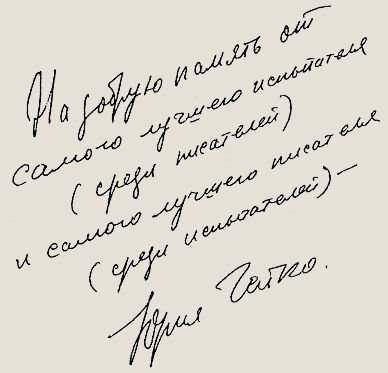 На добрую память от
самого лучшего испытателя
(среди писателей)
и самого лучшего писателя
(среди испытателей) –
Юрия Гейко.